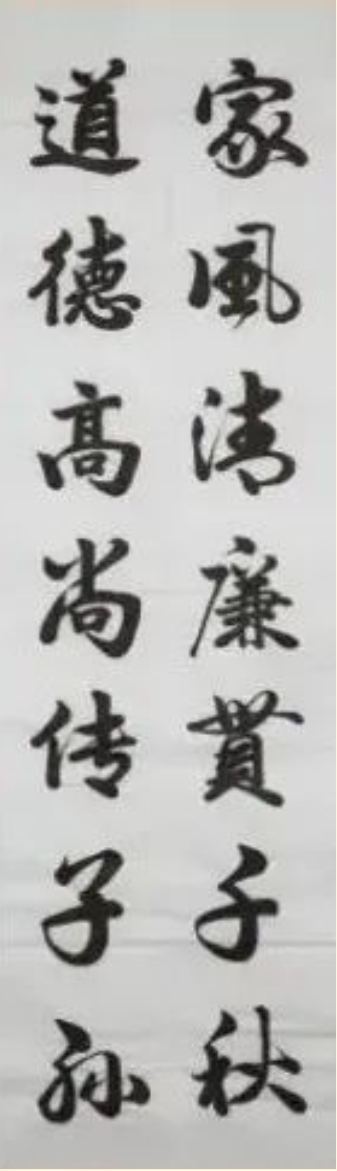 家風清廉貫千秋
道德高尚传子孫